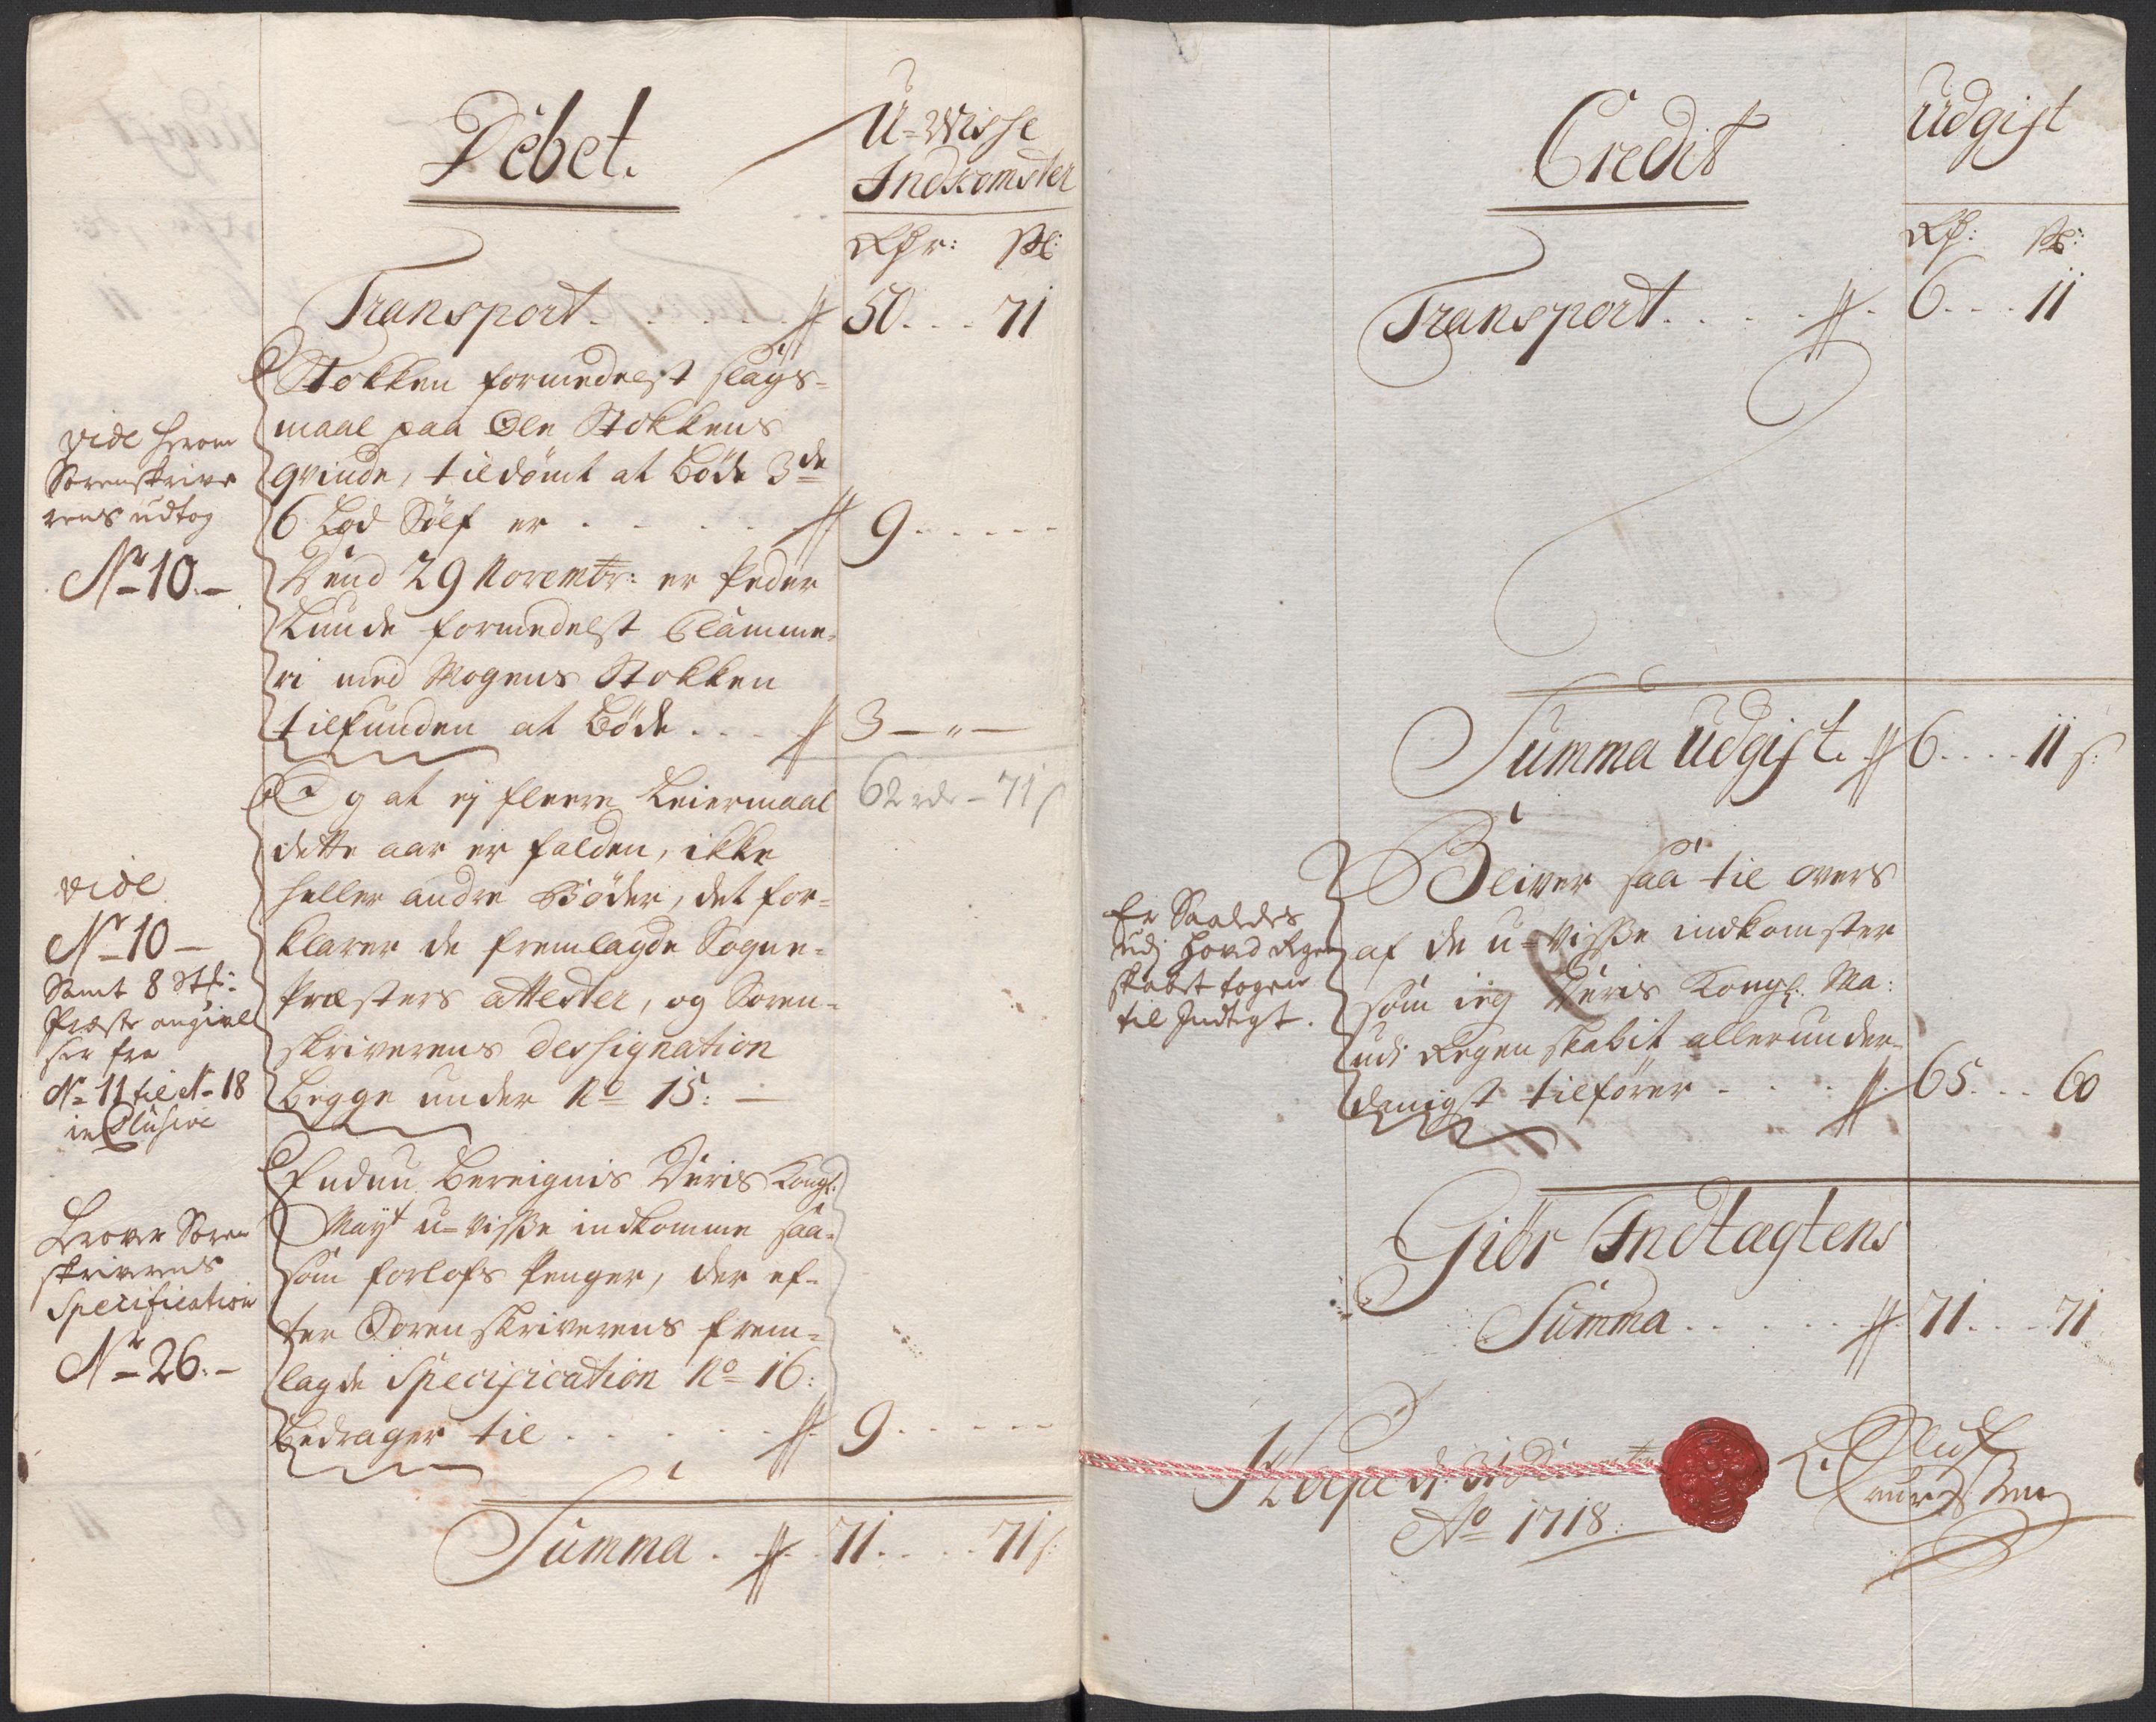 Debet.
U=Wisse
Indkomster
Rdr: ſk:
Transport . . . . . . 50 . . . 71
Stokken formedelst slags-
maal paa Ole Stokkens
qvinde, tildømt at bøde 3de
6 Lod Sølf er . . . . . 9 . . . .
vide herom
Sorenskrive
rens udtog
No 10.–
Dend 29 Novembr: er Peder
Lunde formedelst Clamme-
ri med Mogens Stokken
tilfunden at bøde . . . 3 – „ –
62 rdr – 71 s
Og at ej fleere Leiermaal
dette aar er falden, ikke
heller andre Bøder, det for-
klarer de fremlagde Sogne-
Præsters attester, og Soren-
skriverens Dessignation
begge under No 15: –
vide
No 10 –
Samt 8 Stk:
Præste angivel
ser fra
No 11 til No 18
inclusive
Endnu bereignis Deris Kongl:
Mayt u-visse indkomme saa-
som forlofs Penger, der ef-
ter Sorenskriverens frem-
lagde Specification No 16:
bedrager til . . . . . . 9 . . . . .
Sorenskriverens
Specification
No 26.–
Summa . . 71 . . . . 71 s:
Credit
Udgift
Rd: ſk:
Transport . . . . . 6 . . . 11
Summa Udgift . 6 . . . . 11 s:
Bliver saa til overs
af de u-visse indkomster
som ieg Deris Kongl: Ma:
udi Regenskabit allerunder-
danigst tilfører . . . . 65 . . . 60
Er Saaledes
udj Hoved Regen
skabet tagen
til Indtegt.
Giør Indtagtens
Summa . . . . . . 71 . . . 71
Ao 1718: